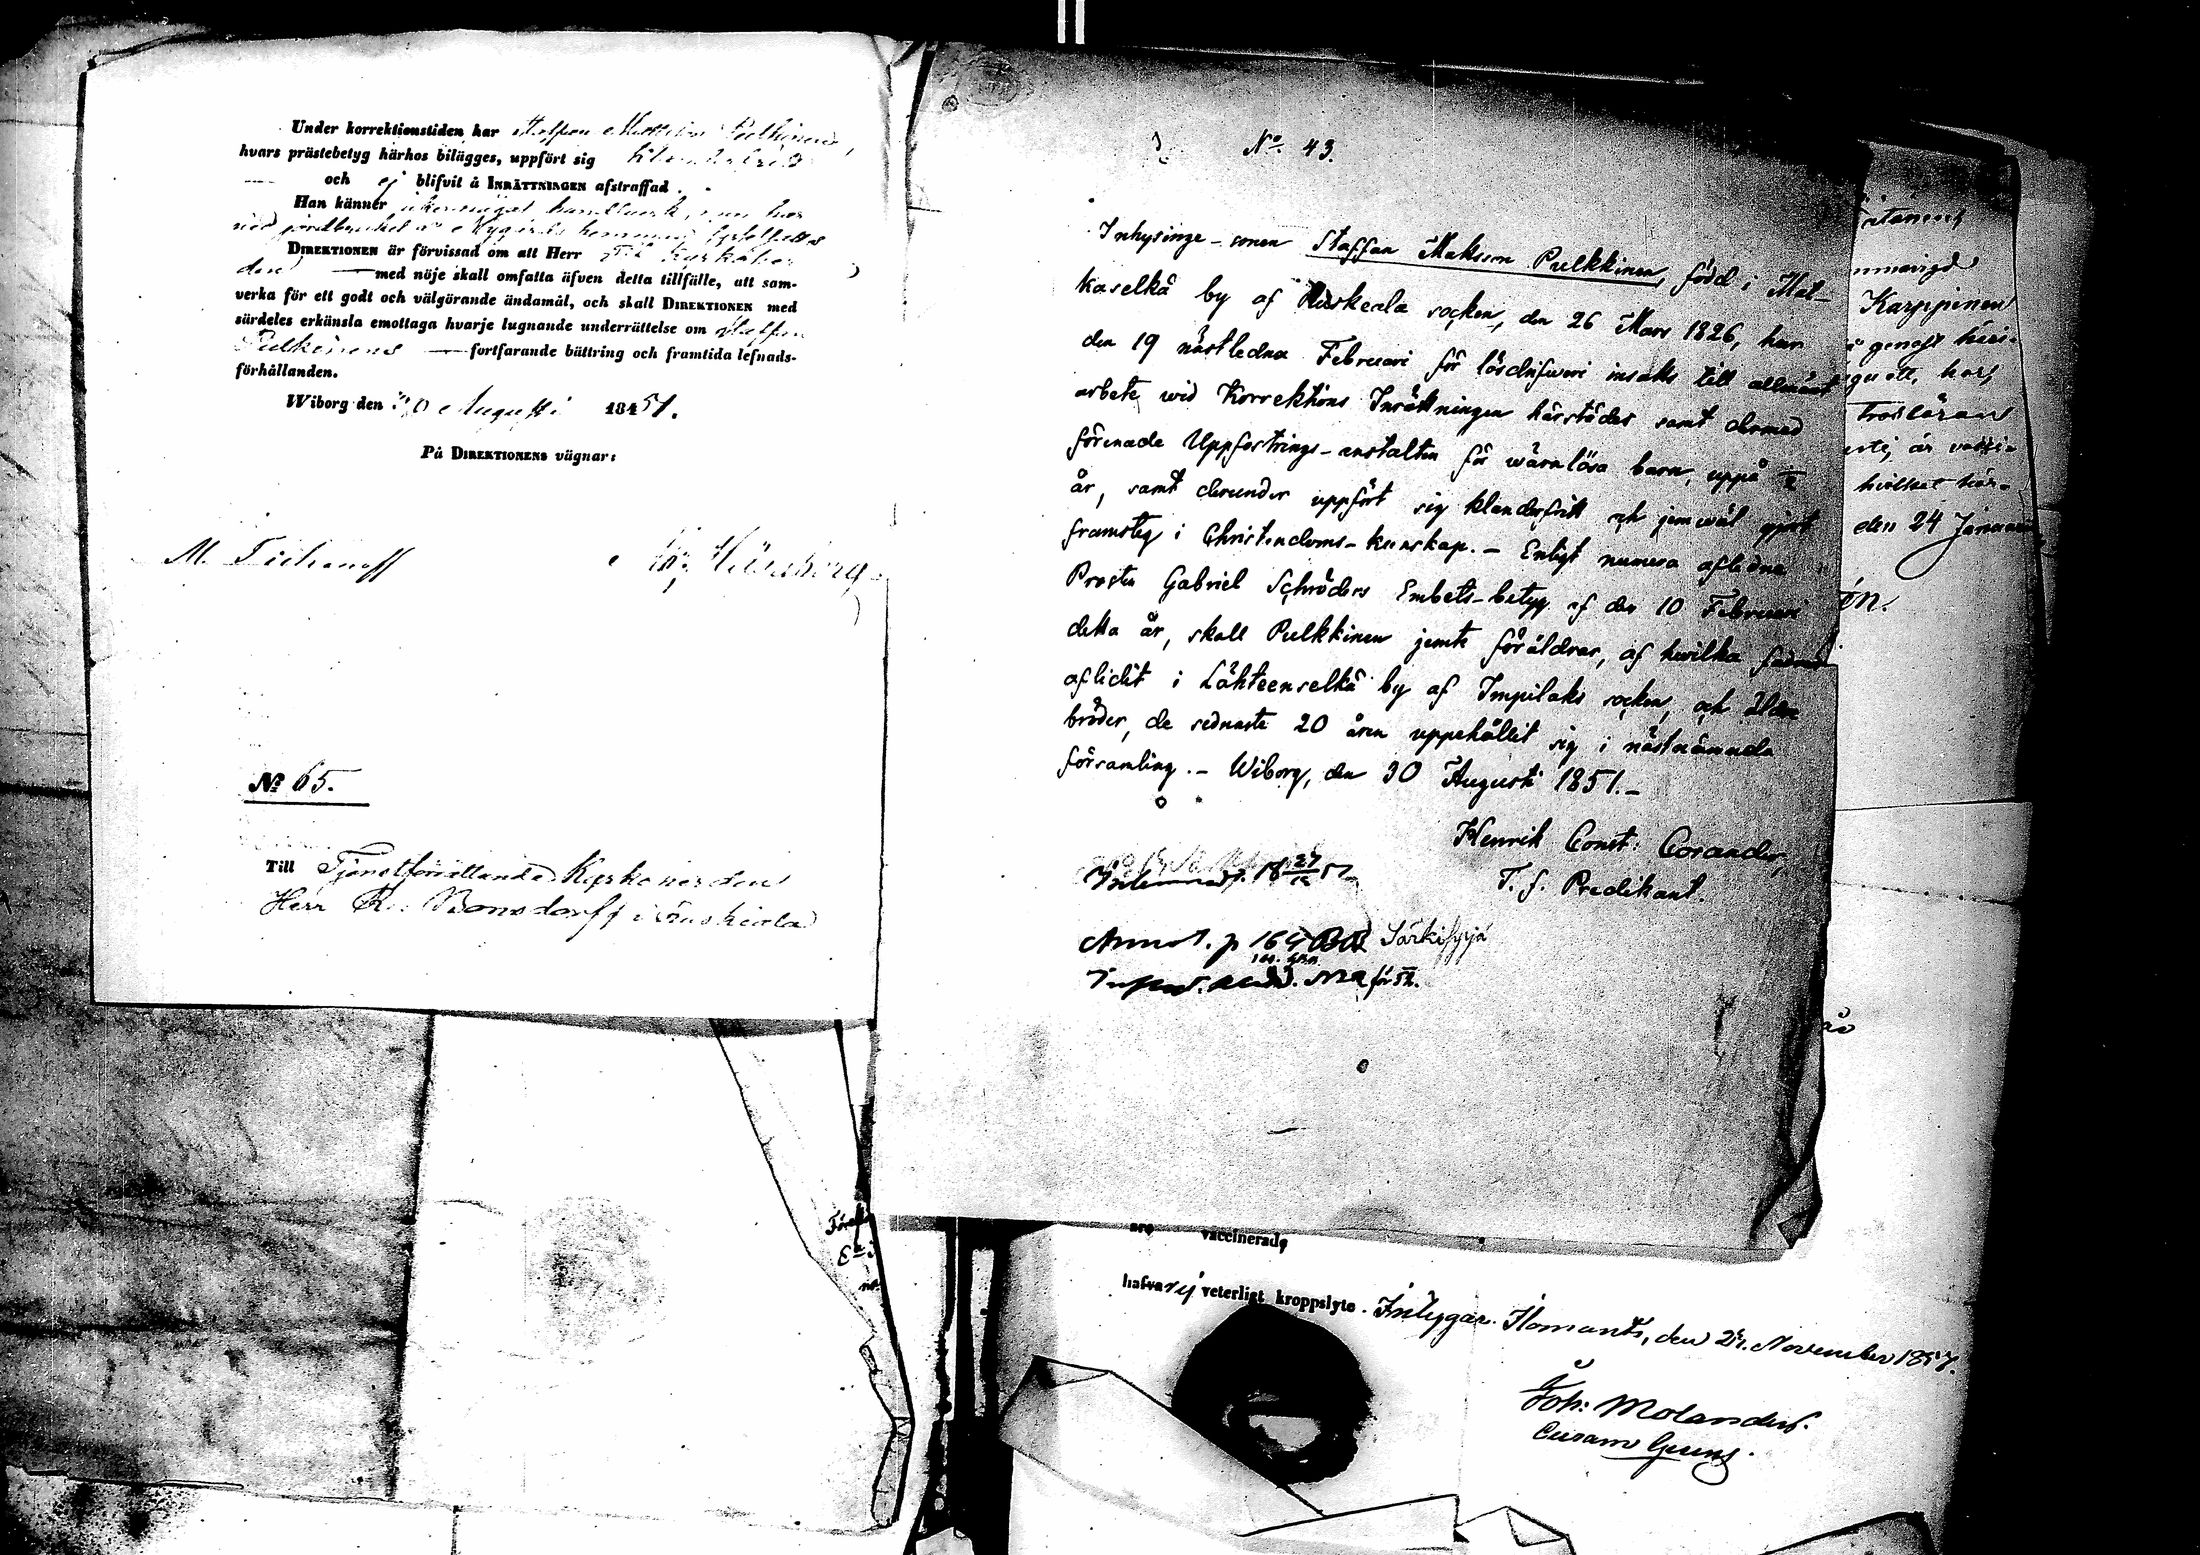 Under korrektionstiden har Staffan Mattsson Pulkinen,
hvars prästebetyg härhos bilägges, uppfört sig klanderfritt
och ej blifvit å INRÄTTNINGEN afstraffad.
Han känner handtverk, men har
vid jordbruket å hemman sysselsatts
DIREKTIONEN är förvissad om att Herr Kyrkoher-
den med nöje skall omfatta äfven detta tillfälle, att sam-
verka för ett godt och välgörande ändamål, och skall DIREKTIONEN med
särdeles erkänsla emottaga hvarje lugnande underrättelse om Staffan
Pulkinens fortfarande bättring och framtida lefnads-
förhållanden.
Wiborg den 30 Augusti 1851.
På DIREKTIONENS vägnar:
M. Tichanoff
№ 65.
Till Tjenstförrättande Kyrkoherden
Herr R. Bonsdorff i Ruskiala
No. 43.
Inhysinge-sonen Staffan Matsson Pulkkinen, född i Mat-
kaselkä by af Ruskeala socken, den 26 Mars 1826, har
den 19 nästledne Februari för lösdrifweri insats till allmänt
arbete wid Korrektions Inrättningen härstädes samt dermed
förenade Uppfostrings-anstalten för wärnlösa barn, uppå
år, samt derunder uppfört sig klanderfritt och jemwäl gjort
framsteg i Christendoms-kunskap. - Enligt numera aflidne
Prosten Gabriel Schröders Embets-betyg af den 10 Februari
detta år, skall Pulkkinen jemte föräldrar, af hwilka fadren
aflidit i Lähteenselkä by af Impilaks socken, och äldre
bröder, de sednaste 20 åren uppehållit sig i nästnämnde
församling. - Wiborg, den 30 Augusti 1851.-
Henrik Const: Corander,
T. f. Predikant.
Annot. p 164 Särkisyrjä
för 52.
Karppinen
genast
trosläran
den 24 Januari
vaccinerad,
hafva ej veterligt kroppslyte. Intygar. Ilomants, den 24. November 1857.
Joh: Molander.